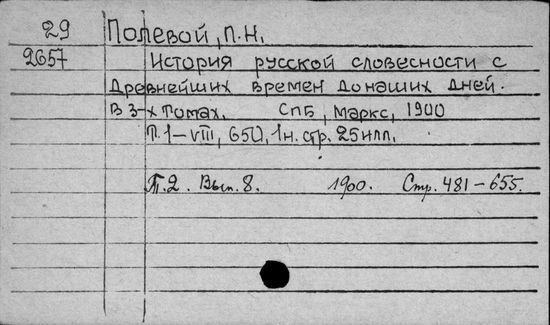 29 Полевой, П.Н.
2657 История русской словесности с
древнейших времен до наших дней.
В 3-х томах. СПБ, Маркс, 1900
Т. 1-VIII, 650, 1 н. стр. 25 илл.
Т. 2. Вып. 8. 1900. Стр. 481-655.